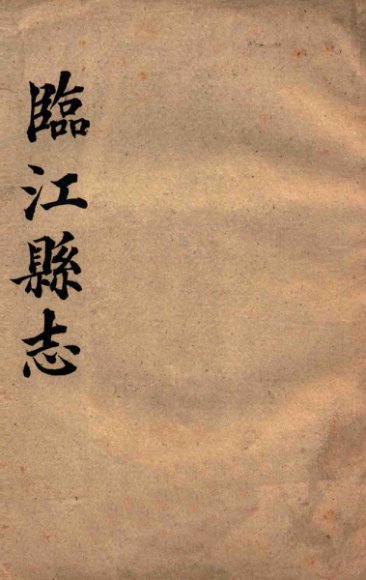 臨江縣志